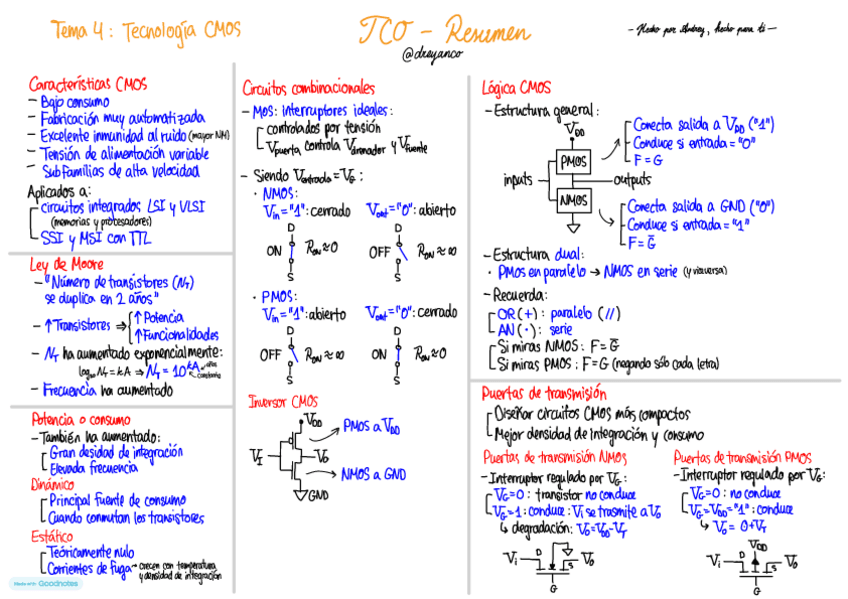 Tema 4: Tecnología CMOS
TCO - Resumen
@dreyanco
- Hecho por Andrey, hecho para ti -
Características CMOS
- Bajo consumo
- Fabricación muy automatizada
- Excelente inmunidad al ruido (mayor NM)
- Tensión de alimentación variable
- Subfamilias de alta velocidad
Aplicados a:
circuitos integrados LSI y VLSI
(memorias y procesadores)
SSI y MSI con TTL
Ley de Moore
- "Número de transistores (NT)
se duplica en 2 años"
- ↑Transistores ⇒ ↑Potencia
↑Funcionalidades
- NT ha aumentado exponencialmente:
log₁₀ NT = kA ⇒ NT = 10^kA ← años
← constante
- Frecuencia ha aumentado
Potencia o consumo
- También ha aumentado:
Gran desidad de integración
Elevada frecuencia
Dinámico
Principal fuente de consumo
Cuando conmutan los transistores
Estático
Teóricamente nulo
Corrientes de fuga → crecen con temperatura
y densidad de integración
Made with Goodnotes
Circuitos combinacionales
- MOS: interruptores ideales:
controlados por tensión
Vpuerta controla Vdrenador y Vfuente
- Siendo Ventrada = VG:
· NMOS:
Vin = "1": cerrado Vont = "0": abierto
D D
ON RON ≈ 0 OFF RON ≈ ∞
S S
· PMOS:
Vin = "1": abierto Vont = "0": cerrado
D D
OFF RON ≈ ∞ ON RON ≈ 0
S S
Inversor CMOS
VDD
PMOS a VDD
VI
V0
NMOS a GND
GND
Lógica CMOS
- Estructura general:
VDD
Conecta salida a VDD ("1")
Conduce si entrada = "0"
F = G
PMOS
inputs outputs
NMOS
Conecta salida a GND ("0")
Conduce si entrada = "1"
F = G̅
- Estructura dual:
· PMOS en paralelo → NMOS en serie (y viceversa)
- Recuerda:
OR (+): paralelo (//)
AN (·): serie
Si miras NMOS: F = G̅
Si miras PMOS: F = G (negando sólo cada letra)
Puertas de transmisión
Diseñar circuitos CMOS más compactos
Mejor densidad de integración y consumo
Puertas de transmisión NMOS
- Interruptor regulado por VG:
VG = 0: transistor no conduce
VG = 1: conduce: Vi se trasmite a V0
↳ degradación: V0 = VDD - VT
Vi D S V0
G
Puertas de transmisión PMOS
- Interruptor regulado por VG:
VG = 0: no conduce
VG = VDD = "1": conduce
↳ V0 = 0 + VT
VDD
Vi D S V0
G